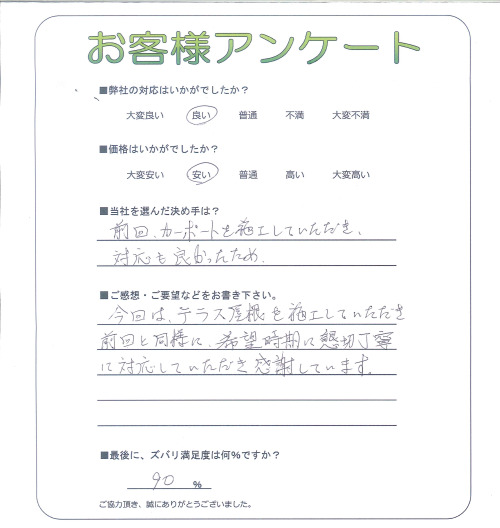 お客様アンケート
■弊社の対応はいかがでしたか？
大変良い 良い 普通 不満 大変不満
■価格はいかがでしたか？
大変安い 安い 普通 高い 大変高い
■当社を選んだ決め手は？
前回、カーポートを施工していただき、
対応も良かったため。
■ご感想・ご要望などをお書き下さい。
今回は、テラス屋根を施工していただき
前回と同様に、希望時期に懇切丁寧
に対応していただき感謝しています。
■最後に、ズバリ満足度は何%ですか？
90 %
ご協力頂き、誠にありがとうございました。